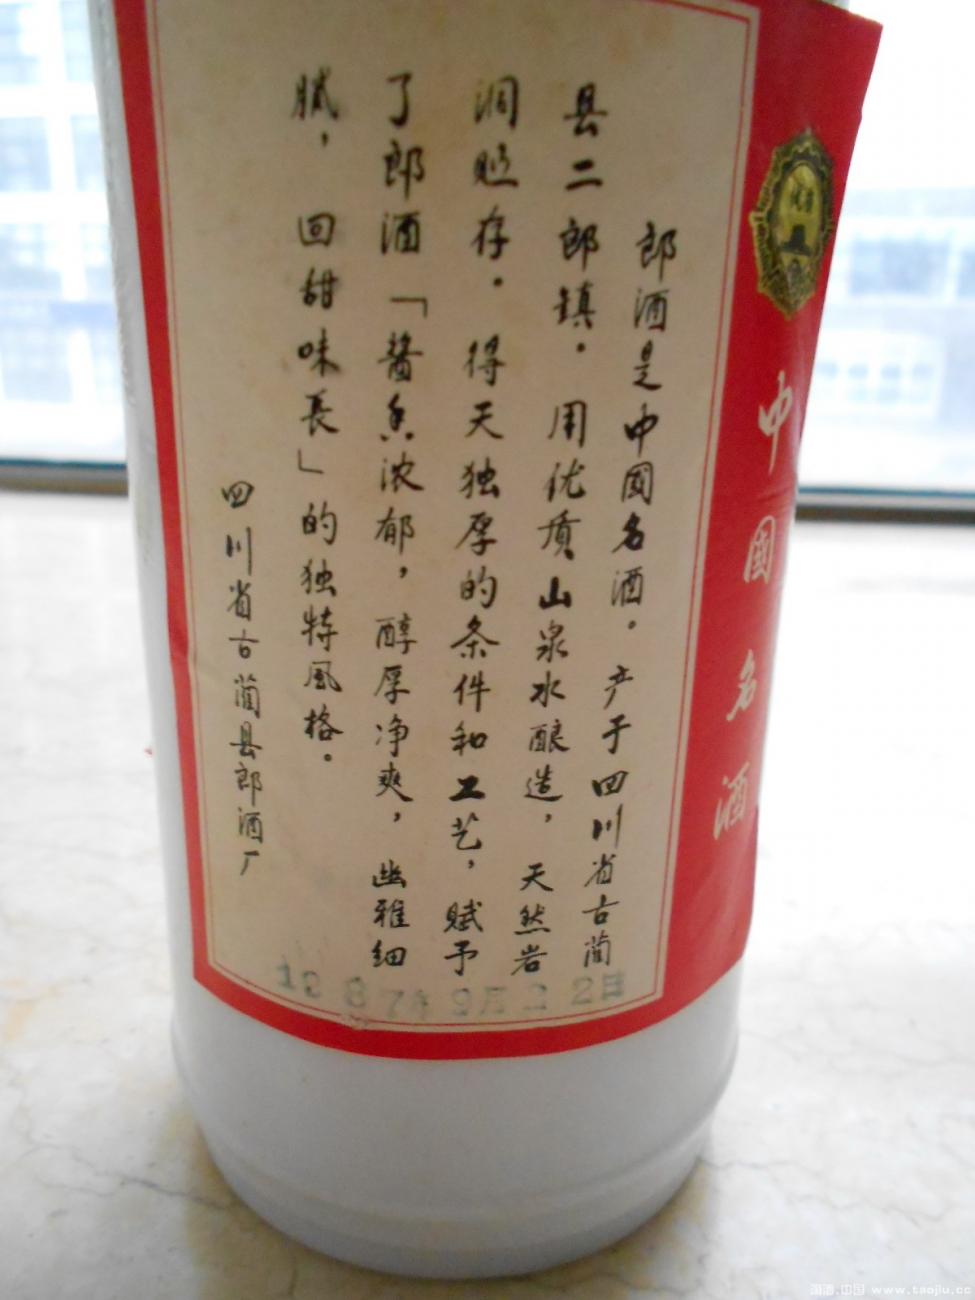 郎酒是中國名酒。产于四川省古蔺
县二郎镇。用优质山泉水酿造，天然岩
洞贮存。得天独厚的条件和工艺，赋予
了郎酒「酱香浓郁，醇厚净爽，幽雅细
腻，回甜味長」的独特風格。
四川省古蔺县郎酒厂
中國名酒
87年9月22日
www.taojiu.cc